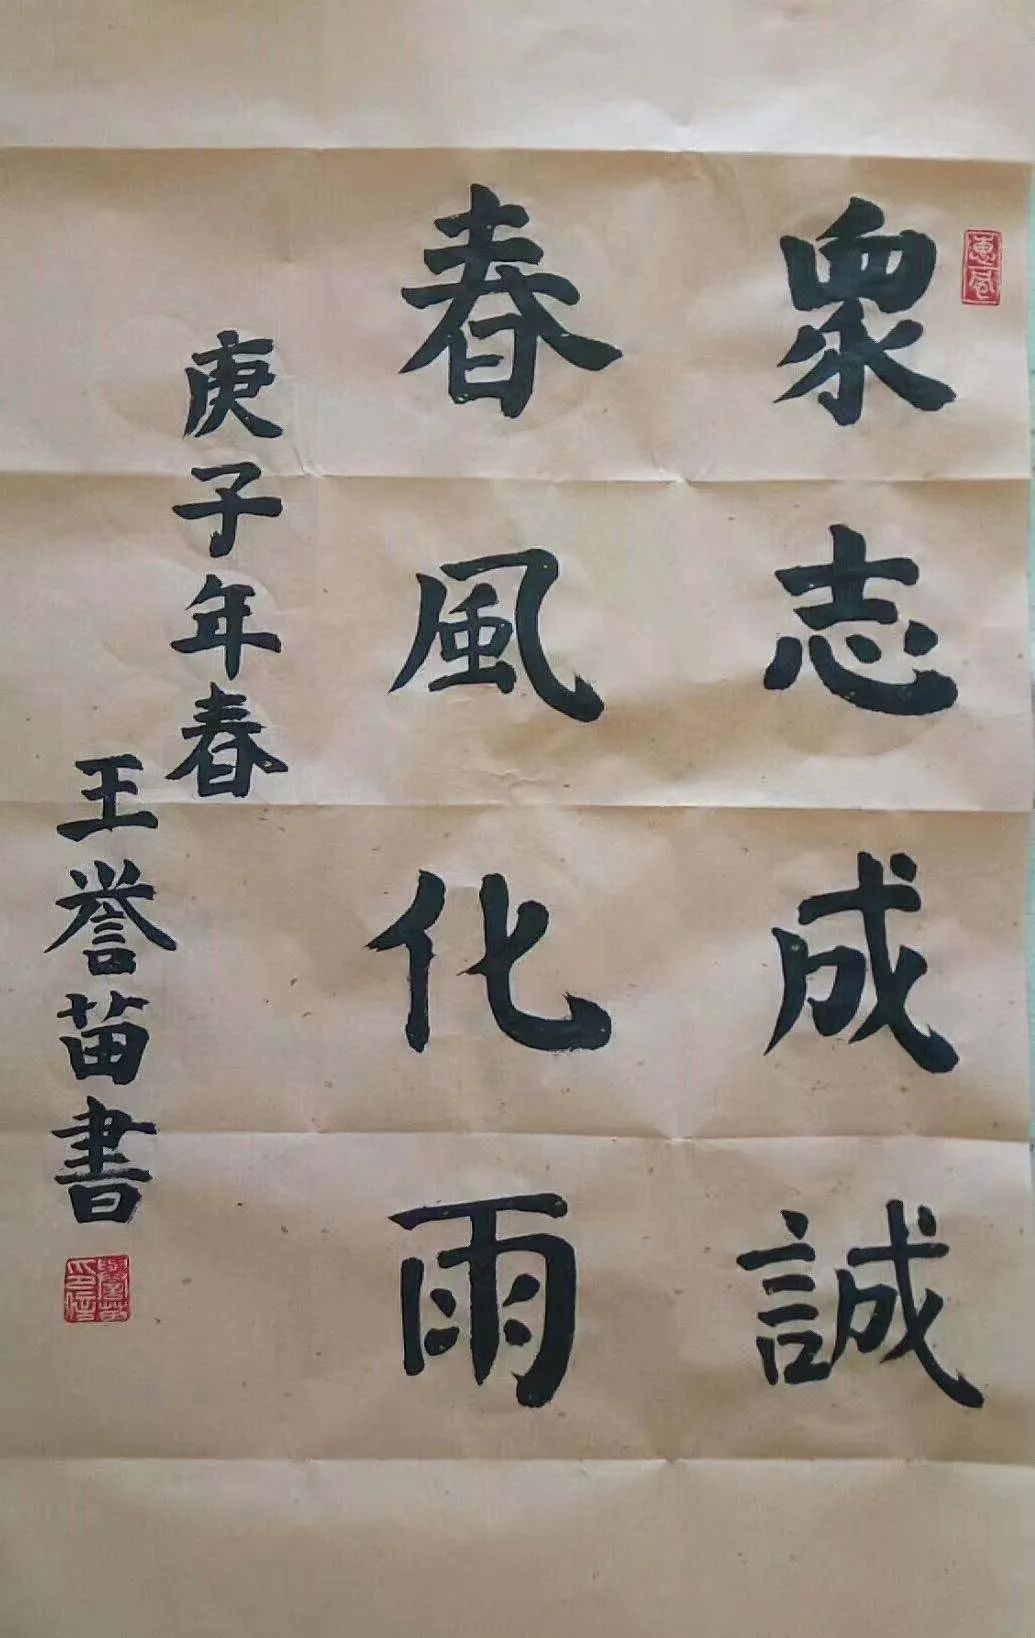 眾志成誠
春風化雨
庚子年春
王誉苗書
惠风